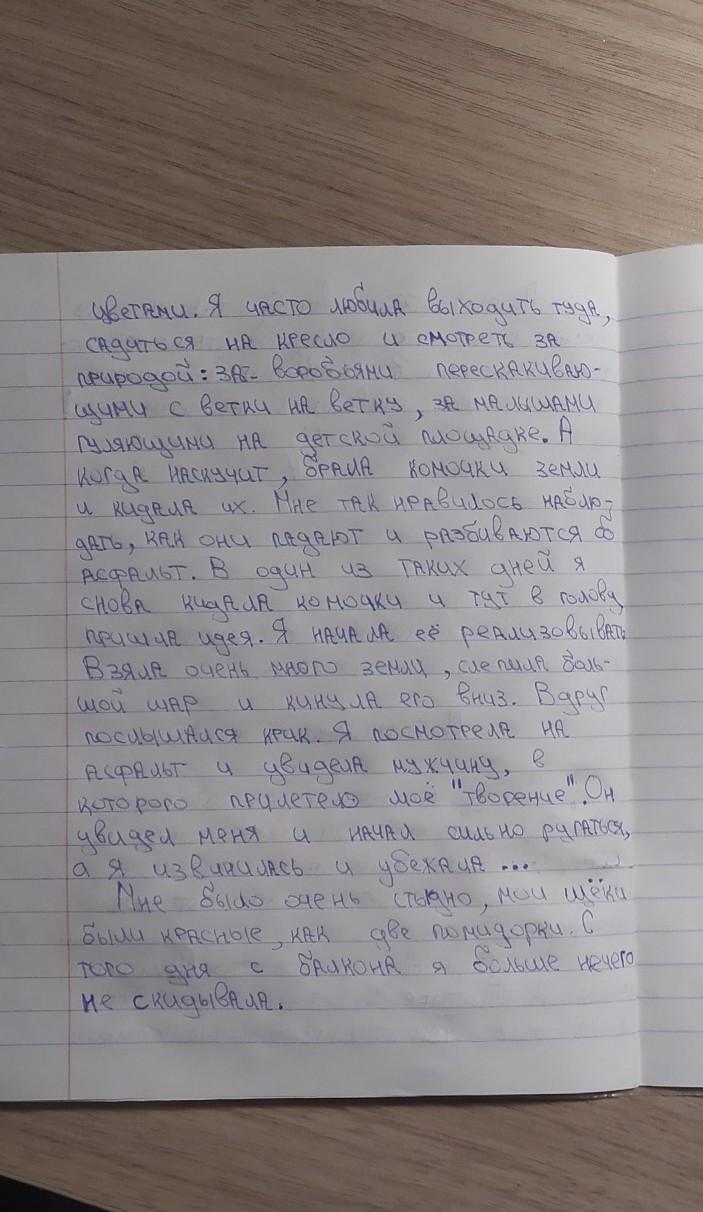 цветами. Я часто любила выходить туда,
садиться на кресло и смотреть за
природой: за воробьями перескакиваю-
щими с ветки на ветку, за малышами
гуляющими на детской площадке. А
когда наскучит, брала комочки земли
и кидала их. Мне так нравилось наблю-
дать, как они падают и разбиваются об
асфальт. В один из таких дней я
снова кидала комочки и тут в голову
пришла идея. Я начала её реализовывать
Взяла очень много земли, слепила боль-
шой шар и кинула его вниз. Вдруг
послышался крик. Я посмотрела на
асфальт и увидела мужчину, в
которого прилетело моё "творение". Он
увидел меня и начал сильно ругаться,
а я извинилась и убежала ...
Мне было очень стыдно, мои щёки
были красные, как две помидорки. С
того дня с балкона я больше нечего
не скидывала.